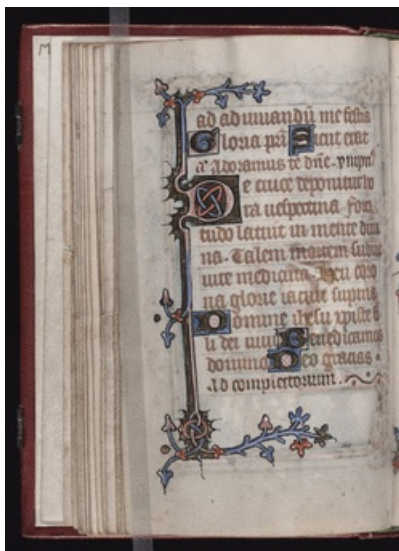 M
ad adiuuandũ me festina
Gloria pr̃i Sicut erat
añ Adoramus te dñe . ympñ
De cruce deponitur ho
ra uespertina . forti
tudo latuit in mente diui
na . Talem mortem subiit
uite medicina . Heu coro
na glorie iacuit supina
Domine ihesu xpiste fi
li dei uiui Benedicamus
domino Deo gracias .
Ad completorium .